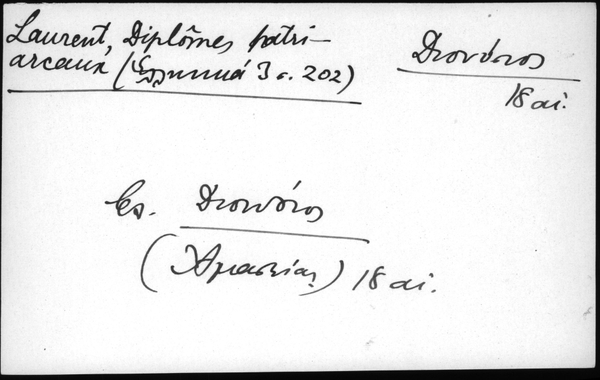 Laurent, Diplômes patri-
arcaux (Ἑλληνικά 3 σ. 202)
Διονύσιος
18 αἰ.
Διονύσιος
(Ἀμασείας) 18 αἰ.